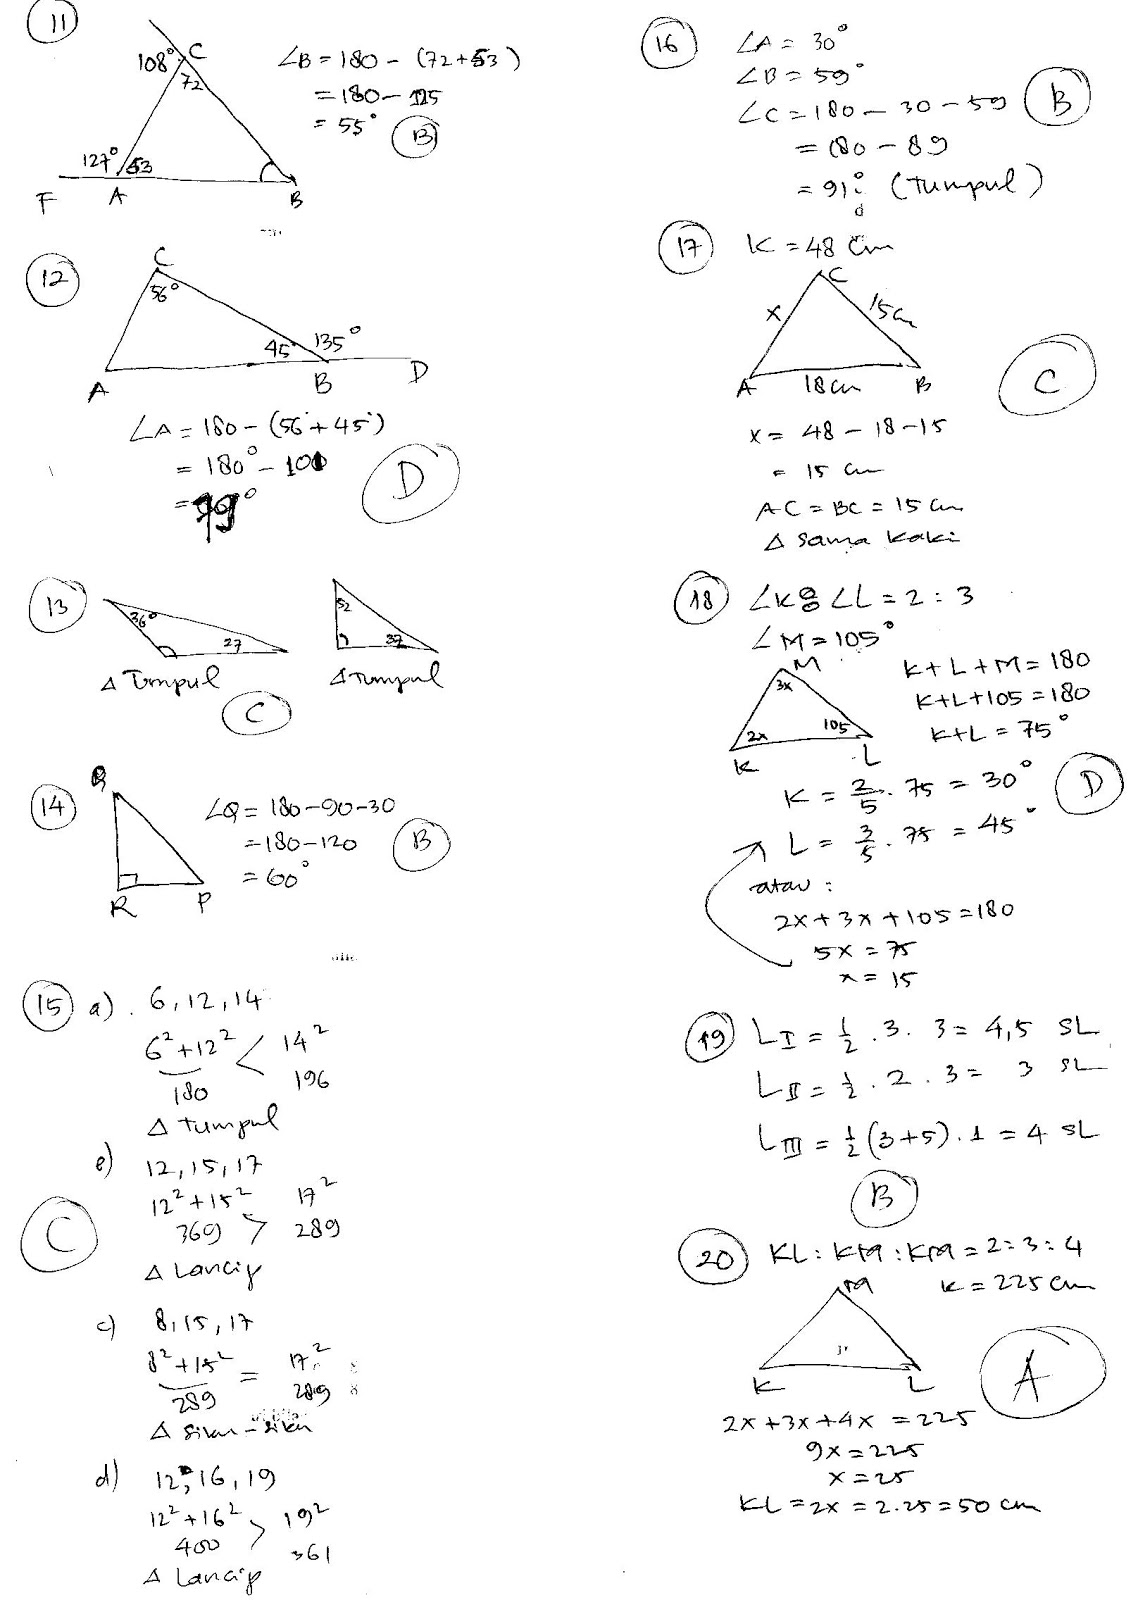 11
108° C
72
127° 53
F A B
∠B = 180 - (72+53)
= 180 - 125
= 55°
B
12
C
56°
45° 135°
A B D
∠A = 180 - (56°+45°)
= 180° - 101
= 79°
D
13
36°
27
52
37
Δ Tumpul
Δ Tumpul
C
14
Q
R P
∠Q = 180-90-30
= 180-120
= 60°
B
15 a) 6, 12, 14
6² + 12² < 14²
180 196
Δ tumpul
e) 12, 15, 17
12² + 15² 17²
369 > 289
Δ Lancip
C
c) 8, 15, 17
8² + 15² = 17²
289 289
Δ siku-siku
d) 12, 16, 19
12² + 16² > 19²
400 361
Δ Lancip
16 ∠A = 30°
∠B = 59°
∠C = 180 - 30 - 59
= 180 - 89
= 91° (Tumpul)
B
17 K = 48 cm
C
x 15 cm
A 18 cm B
x = 48 - 18 - 15
= 15 cm
AC = BC = 15 cm
Δ sama kaki
C
18 ∠K : ∠L = 2 : 3
∠M = 105°
M
3x
2x 105
K L
K + L + M = 180
K+L+105 = 180
K+L = 75°
K = 2/5 . 75 = 30°
L = 3/5 . 75 = 45°
D
atau :
2x + 3x + 105 = 180
5x = 75
x = 15
19 L I = 1/2 . 3 . 3 = 4,5 SL
L II = 1/2 . 2 . 3 = 3 SL
L III = 1/2 (3+5) . 1 = 4 SL
B
20 KL : KM : KM = 2 : 3 : 4
K = 225 cm
M
K L
A
2x + 3x + 4x = 225
9x = 225
x = 25
KL = 2x = 2.25 = 50 cm